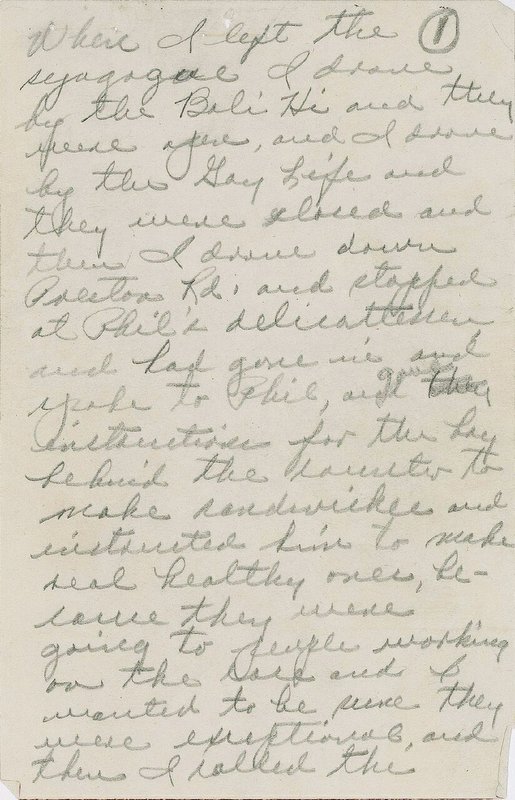 When I left the ①
synagogue I drove
by the Bali Hi and they
were open, and I drove
by the Gay Life and
they were closed and
then I drove down
Preston Rd. and stopped
at Phil's delicattessen
and had gone in and
spoke to Phil, and gave
instructions for the boy
behind the counter to
make sandwiches and
instructed him to make
real healthy ones, be-
cause they were
going to people working
on the case and I
wanted to be sure they
were exceptional, and
then I called the